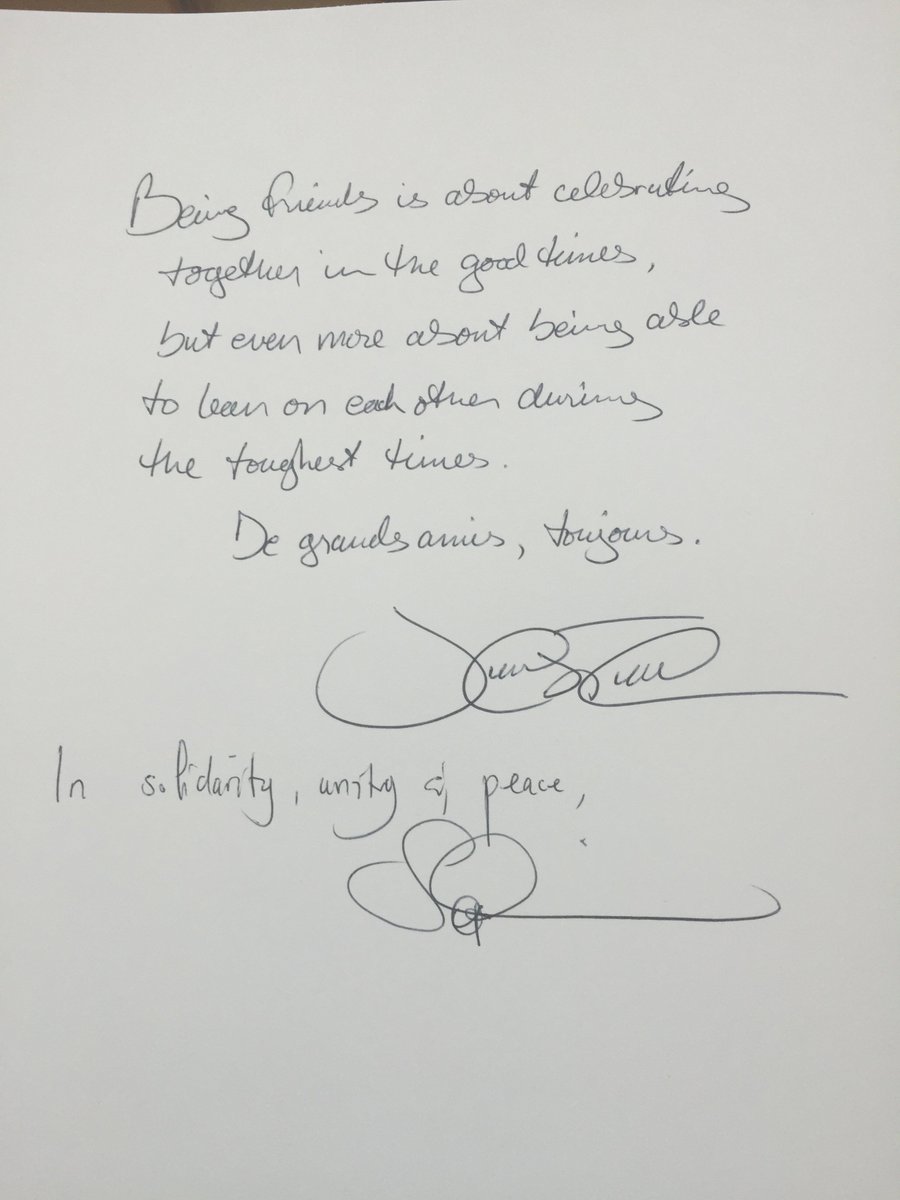 Being friends is about celebrating
together in the good times,
but even more about being able
to lean on each other during
the toughest times.
De grands amis, toujours.
In solidarity, unity & peace,